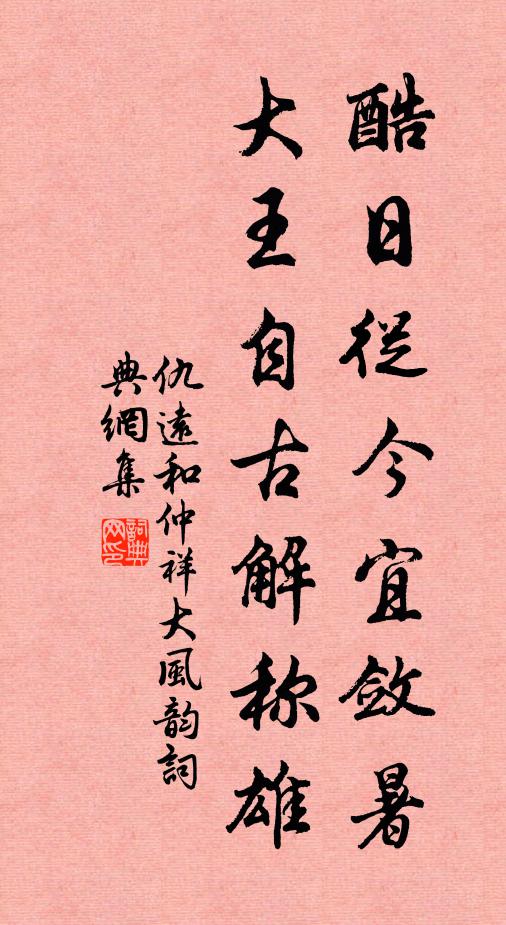 酷日從今宜斂暑
大王自古解称雄
仇遠和仲祥大風韵詞
典網集
詞典網印